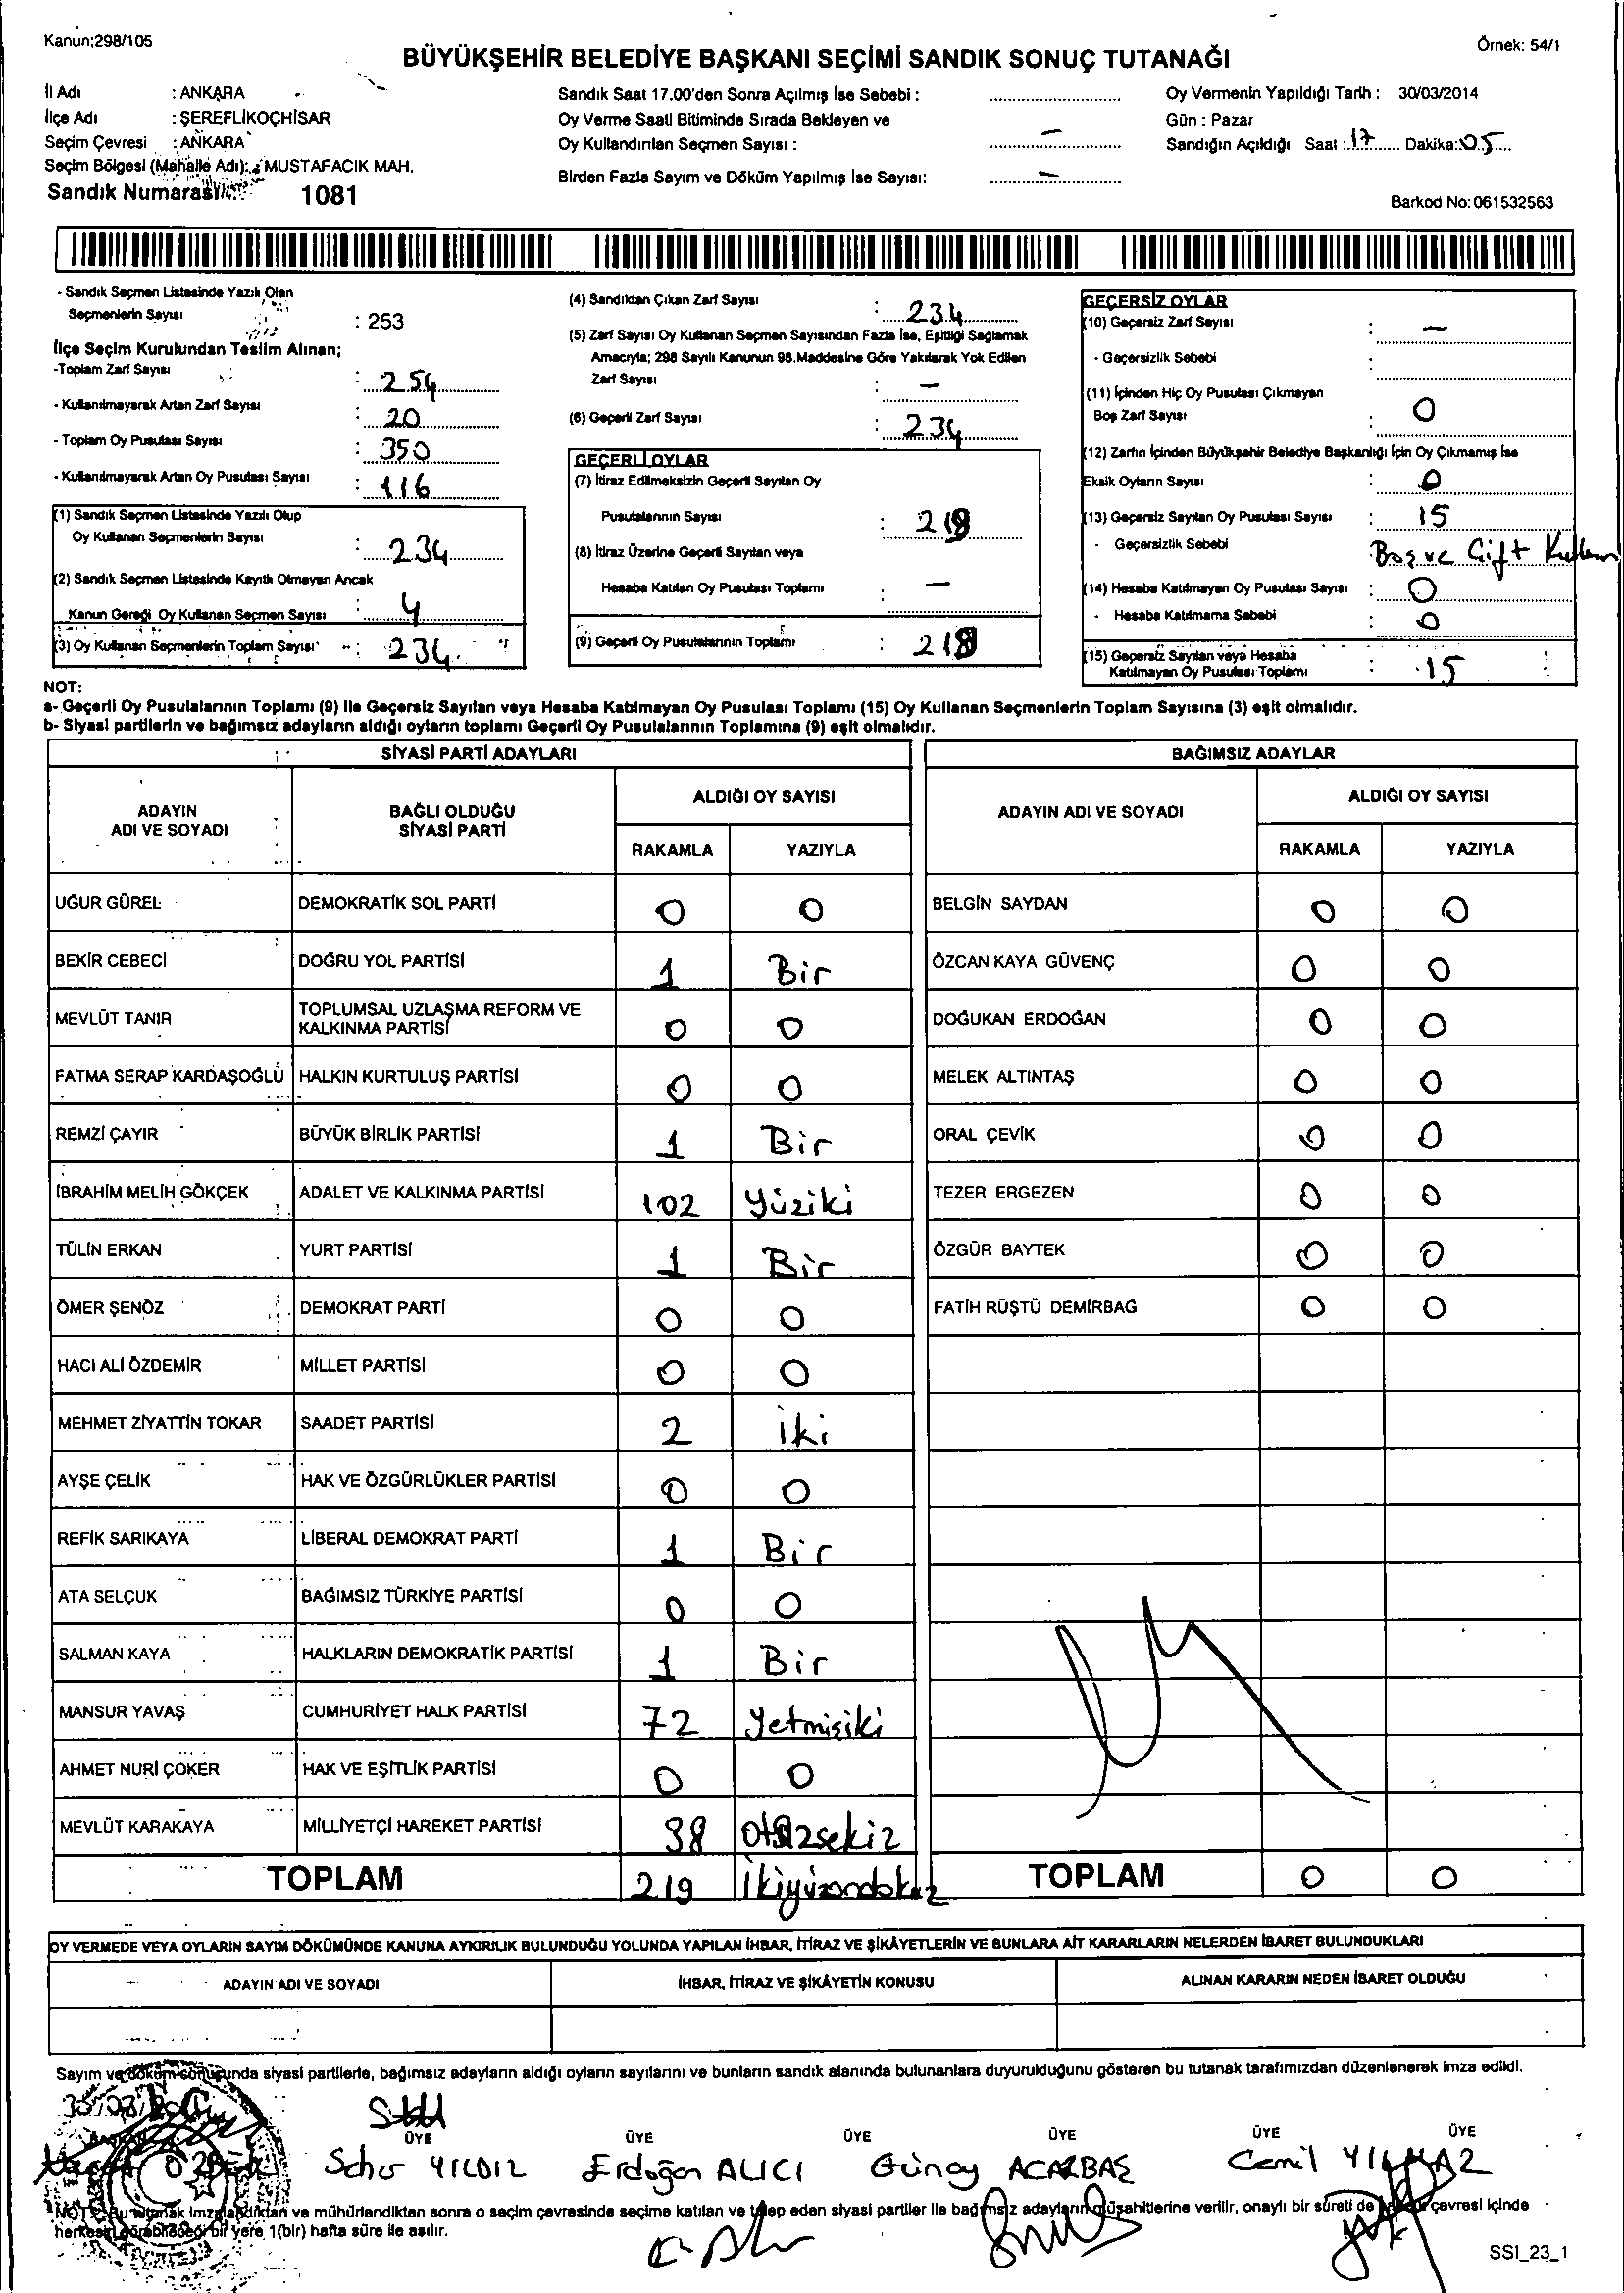 Kanun;298/105
Örnek: 54/1
BÜYÜKŞEHİR BELEDİYE BAŞKANI SEÇİMİ SANDIK SONUÇ TUTANAĞI
İl Adı : ANKARA
İlçe Adı : ŞEREFLİKOÇHİSAR
Seçim Çevresi : ANKARA
Seçim Bölgesi (Mahalle Adı): MUSTAFACIK MAH.
Sandık Numarası 1081
Sandık Saat 17.00'den Sonra Açılmış İse Sebebi :
Oy Verme Saati Bitiminde Sırada Bekleyen ve
Oy Kullandırılan Seçmen Sayısı : —
Birden Fazla Sayım ve Döküm Yapılmış İse Sayısı: —
Oy Vermenin Yapıldığı Tarih : 30/03/2014
Gün : Pazar
Sandığın Açıldığı Saat : 17 Dakika: 05
Barkod No: 061532563
- Sandık Seçmen Listesinde Yazılı Olan
Seçmenlerin Sayısı : 253
İlçe Seçim Kurulundan Teslim Alınan;
-Toplam Zarf Sayısı : 254
- Kullanılmayarak Artan Zarf Sayısı : 20
- Toplam Oy Pusulası Sayısı : 350
- Kullanılmayarak Artan Oy Pusulası Sayısı : 116
(1) Sandık Seçmen Listesinde Yazılı Olup
Oy Kullanan Seçmenlerin Sayısı : 234
(2) Sandık Seçmen Listesinde Kayıtlı Olmayan Ancak
Kanun Gereği Oy Kullanan Seçmen Sayısı : 4
(3) Oy Kullanan Seçmenlerin Toplam Sayısı : 234
(4) Sandıktan Çıkan Zarf Sayısı : 234
(5) Zarf Sayısı Oy Kullanan Seçmen Sayısından Fazla İse, Eşitliği Sağlamak
Amacıyla; 298 Sayılı Kanunun 98.Maddesine Göre Yakılarak Yok Edilen
Zarf Sayısı : —
(6) Geçerli Zarf Sayısı : 234
GEÇERLİ OYLAR
(7) İtiraz Edilmeksizin Geçerli Sayılan Oy
Pusulalarının Sayısı : 219
(8) İtiraz Üzerine Geçerli Sayılan veya
Hesaba Katılan Oy Pusulası Toplamı : —
(9) Geçerli Oy Pusulalarının Toplamı : 219
GEÇERSİZ OYLAR
(10) Geçersiz Zarf Sayısı : —
- Geçersizlik Sebebi :
(11) İçinden Hiç Oy Pusulası Çıkmayan
Boş Zarf Sayısı : 0
(12) Zarfın İçinden Büyükşehir Belediye Başkanlığı İçin Oy Çıkmamış İse
Eksik Oyların Sayısı : 0
(13) Geçersiz Sayılan Oy Pusulası Sayısı : 15
- Geçersizlik Sebebi : Boş ve Çift Kullanım
(14) Hesaba Katılmayan Oy Pusulası Sayısı : 0
- Hesaba Katılmama Sebebi : 0
(15) Geçersiz Sayılan veya Hesaba
Katılmayan Oy Pusulası Toplamı : 15
NOT:
a- Geçerli Oy Pusulalarının Toplamı (9) ile Geçersiz Sayılan veya Hesaba Katılmayan Oy Pusulası Toplamı (15) Oy Kullanan Seçmenlerin Toplam Sayısına (3) eşit olmalıdır.
b- Siyasi partilerin ve bağımsız adayların aldığı oyların toplamı Geçerli Oy Pusulalarının Toplamına (9) eşit olmalıdır.
SİYASİ PARTİ ADAYLARI
ADAYIN ADI VE SOYADI
BAĞLI OLDUĞU SİYASİ PARTİ
ALDIĞI OY SAYISI
RAKAMLA YAZIYLA
UĞUR GÜREL DEMOKRATİK SOL PARTİ 0 0
BEKİR CEBECİ DOĞRU YOL PARTİSİ 1 Bir
MEVLÜT TANIR TOPLUMSAL UZLAŞMA REFORM VE KALKINMA PARTİSİ 0 0
FATMA SERAP KARDAŞOĞLU HALKIN KURTULUŞ PARTİSİ 0 0
REMZİ ÇAYIR BÜYÜK BİRLİK PARTİSİ 1 Bir
İBRAHİM MELİH GÖKÇEK ADALET VE KALKINMA PARTİSİ 102 Yüziki
TÜLİN ERKAN YURT PARTİSİ 1 Bir
ÖMER ŞENÖZ DEMOKRAT PARTİ 0 0
HACI ALİ ÖZDEMİR MİLLET PARTİSİ 0 0
MEHMET ZİYATTİN TOKAR SAADET PARTİSİ 2 iki
AYŞE ÇELİK HAK VE ÖZGÜRLÜKLER PARTİSİ 0 0
REFİK SARIKAYA LİBERAL DEMOKRAT PARTİ 1 Bir
ATA SELÇUK BAĞIMSIZ TÜRKİYE PARTİSİ 0 0
SALMAN KAYA HALKLARIN DEMOKRATİK PARTİSİ 1 Bir
MANSUR YAVAŞ CUMHURİYET HALK PARTİSİ 72 Yetmişiki
AHMET NURİ ÇOKER HAK VE EŞİTLİK PARTİSİ 0 0
MEVLÜT KARAKAYA MİLLİYETÇİ HAREKET PARTİSİ 38 otuzsekiz
TOPLAM 219 İkiyüzondokuz
BAĞIMSIZ ADAYLAR
ADAYIN ADI VE SOYADI
ALDIĞI OY SAYISI
RAKAMLA YAZIYLA
BELGİN SAYDAN 0 0
ÖZCAN KAYA GÜVENÇ 0 0
DOĞUKAN ERDOĞAN 0 0
MELEK ALTINTAŞ 0 0
ORAL ÇEVİK 0 0
TEZER ERGEZEN 0 0
ÖZGÜR BAYTEK 0 0
FATİH RÜŞTÜ DEMİRBAĞ 0 0
TOPLAM 0 0
OY VERMEDE VEYA OYLARIN SAYIM DÖKÜMÜNDE KANUNA AYKIRILIK BULUNDUĞU YOLUNDA YAPILAN İHBAR, İTİRAZ VE ŞİKÂYETLERİN VE BUNLARA AİT KARARLARIN NELERDEN İBARET BULUNDUKLARI
ADAYIN ADI VE SOYADI
İHBAR, İTİRAZ VE ŞİKÂYETİN KONUSU
ALINAN KARARIN NEDEN İBARET OLDUĞU
Sayım ve döküm sonucunda siyasi partilerle, bağımsız adayların aldığı oyların sayılarını ve bunların sandık alanında bulunanlara duyurulduğunu gösteren bu tutanak tarafımızdan düzenlenerek imza edildi.
30/03/2014
BAŞKAN ÜYE ÜYE ÜYE ÜYE ÜYE ÜYE
Seher YILDIZ Erdoğan ALICI Günay ACARBAŞ Cemil YILMAZ
NOT: Bu tutanak imzalandıktan ve mühürlendikten sonra o seçim çevresinde seçime katılan ve talep eden siyasi partiler ile bağımsız adayların müşahitlerine verilir, onaylı bir sureti de sandık çevresi içinde
herkesin görebileceği bir yere 1(bir) hafta süre ile asılır.
SSI_23_1